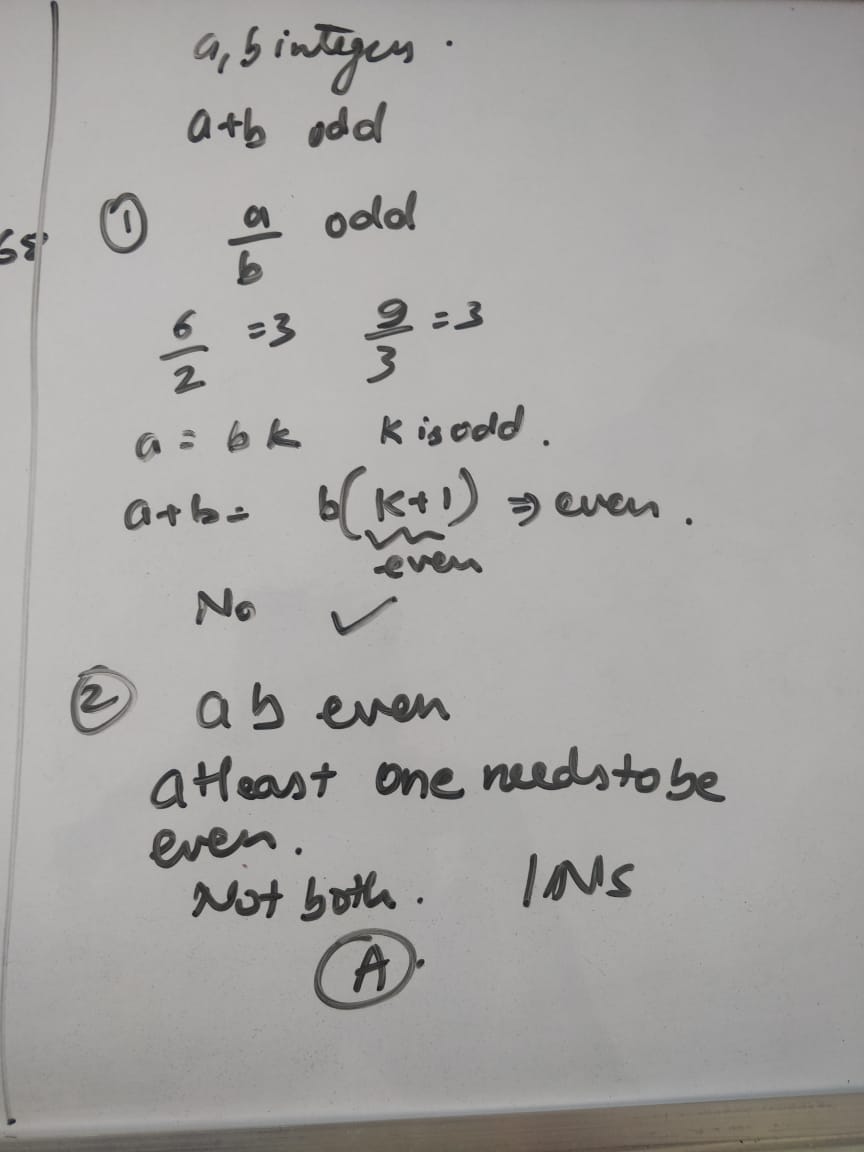 a, b integers.
a+b odd
① a/b odd
6/2 =3 9/3 =3
a = bk k is odd.
a+b = b(k+1) ⇒ even.
even
No ✓
② ab even
atleast one needs to be
even.
Not both. INS
Ⓐ.